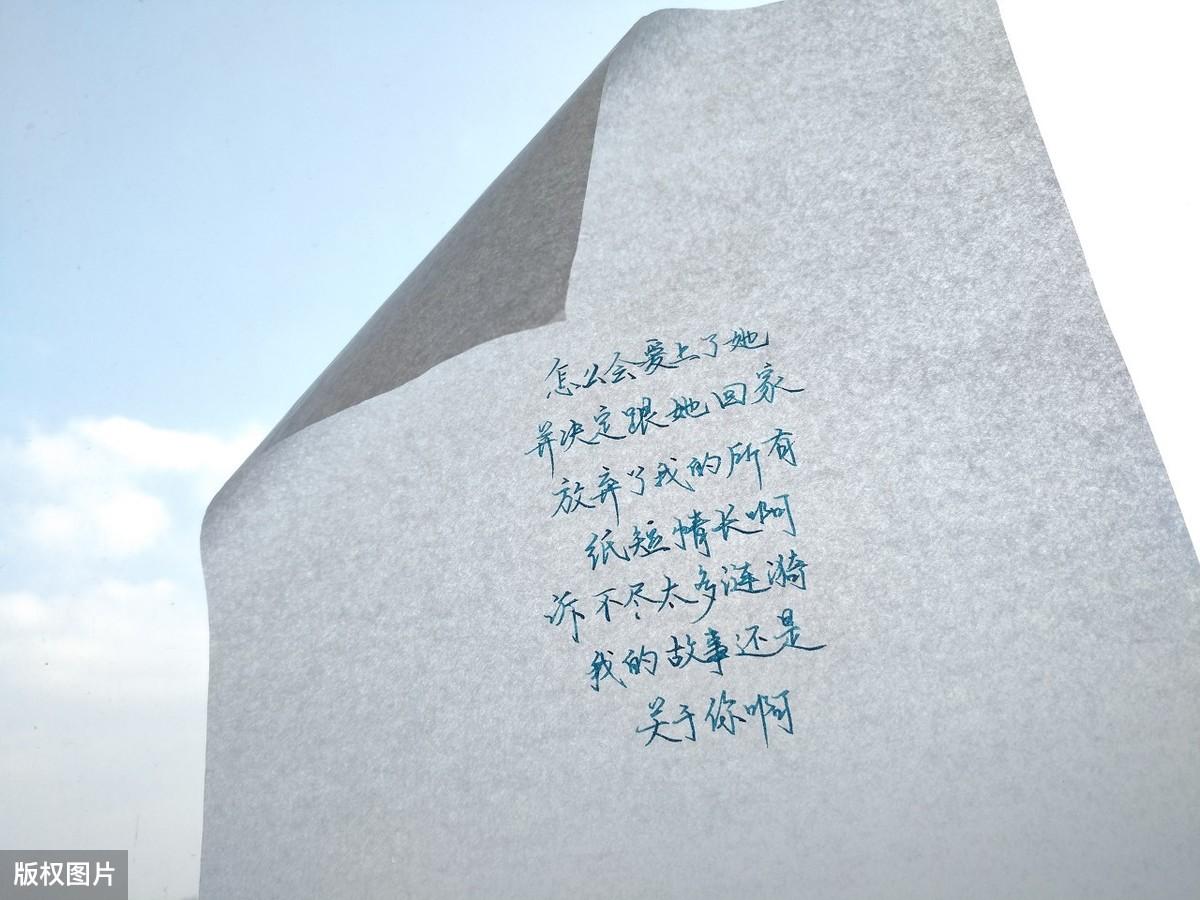 怎么会爱上了她
并决定跟她回家
放弃了我的所有
纸短情长啊
诉不尽太多涟漪
我的故事还是
关于你啊
版权图片